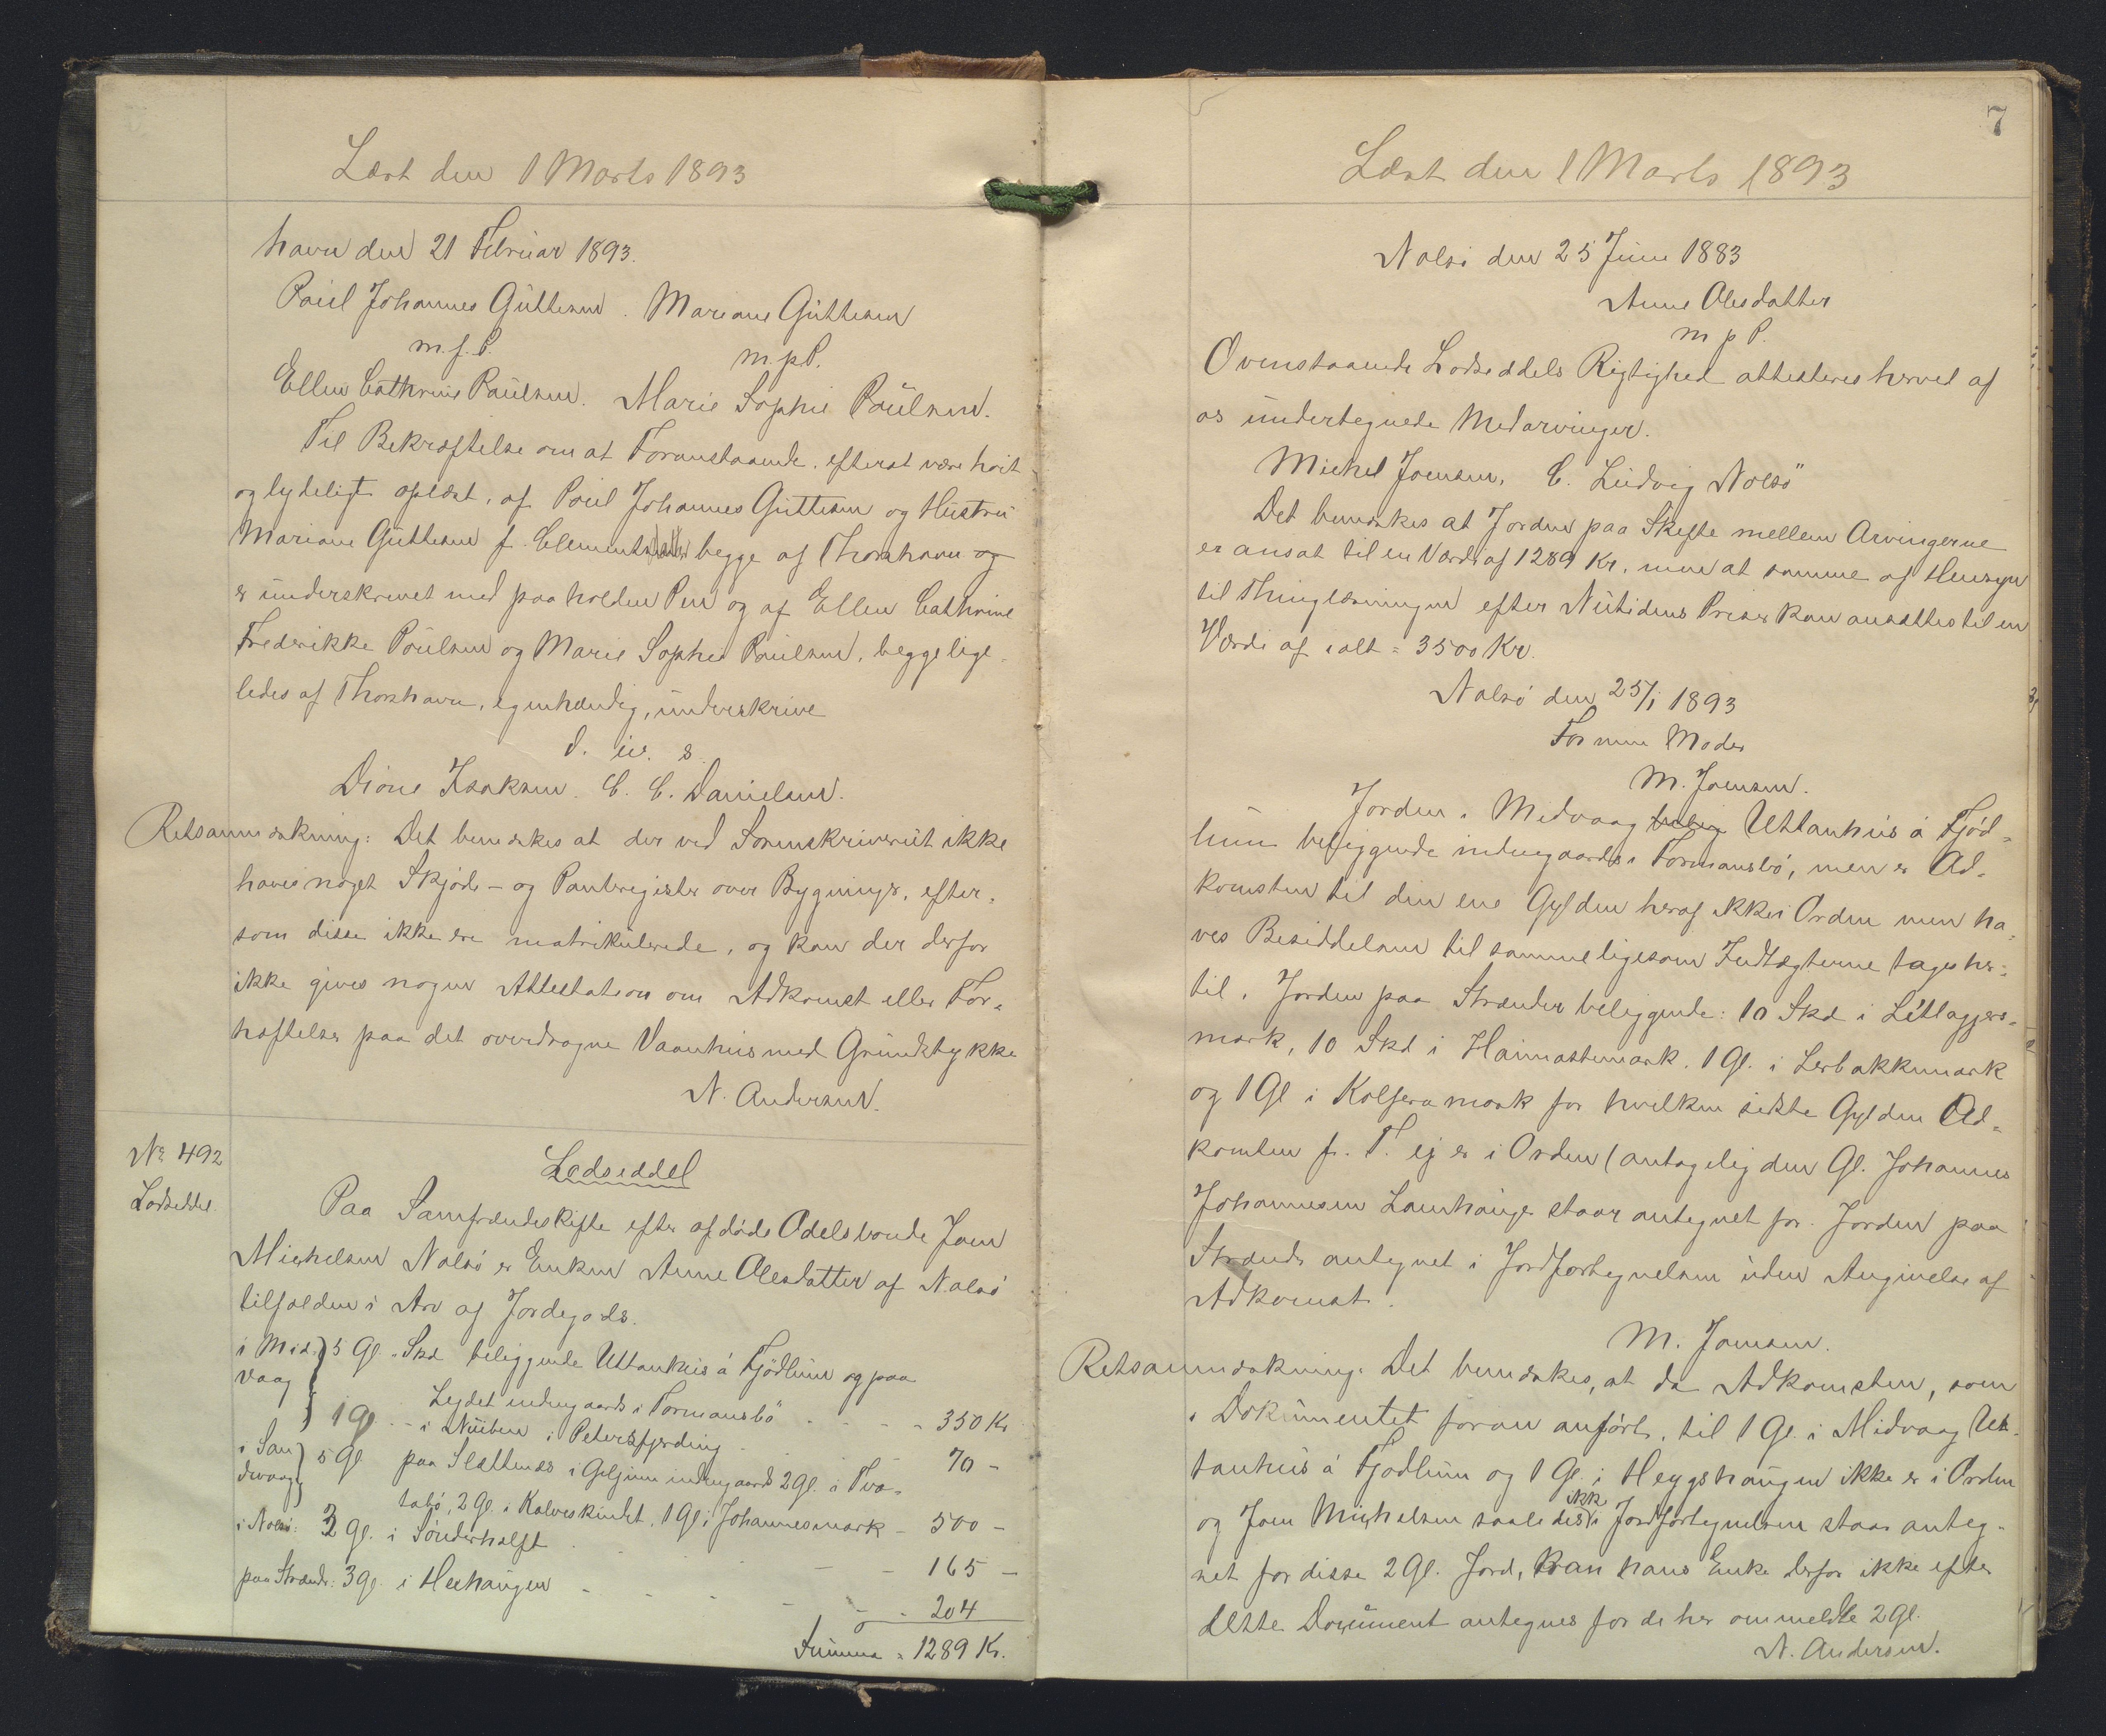 Læst den 1 Marts 1893
havn den 21 Februar 1893.
Poul Johannes Guttesen. Mariane Guttesen
m. f. P. m p P.
Ellen Cathrine Paulsen. Marie Sophie Poulsen.
Til Bekræftelse om at Foranstaaende, efterat være høit
og tydeligt oplæst, af Poul Johannes Guttesen og Hustru
Mariane Guttesen f. Clements begge af Thorshavn og
er underskrevet med paaholden Pen og af Ellen Cathrine
Frederikke Poulsen og Marie Sophie Poulsen, begge lige-
ledes af Thorshavn, egenhændig, underskrive
d. u. s.
Dione Isaksen. C. C. Danielsen.
Retsanmærkning: Det bemærkes at der ved Sorenskriveriet ikke
haves noget Skjøde- og Panteregister over Bygninger, efter-
som disse ikke ere matrikulerede, og kan der derfor
ikke gives nogen Attestation om Adkomst eller For-
hæftelser paa det overdragne Vaanhus med Grundstykke
N. Andersen.
No 492
Lodseddel
Lodseddel
Paa Samfrændeskifte efter afdøde Odelsbonde Joen
Michelsen Nolsø er Enken Anne Olesdatter af Nolsø
tilfalden i Arv af Jordegods.
i Mid- } 5 Gl. " Skd beliggende Uttanhus á Fjødlum og paa
vaag } Leydet indengaards i Formansbø - - - - 350 Kr
1 Gl - - i Nuiben i Petersfjerding - - 70 -
i San- } 5 Gl paa Slettenes i Giljum indengaards 2 Gl. i Tvø-
dvaag } tabø, 2 Gl. i Kalveskindet, 1 Gl i Johannesmark - 500 -
i Nolsø: 3 Gl. i Sønderhalft - - - 165 -
paa Strænder: 3 Gl. i Heehaugen - - - - - 204
Summa = 1289 Kr.
7
Læst den 1 Marts 1893
Nolsø den 25 Juni 1883
Anne Olesdatter
m p P.
Ovenstaaende Lodseddels Rigtighed attesteres herved af
os undertegnede Medarvinger.
Michel Joensen, C. Ludvig Nolsø
Det bemærkes at Jorden paa Skifte mellem Arvingerne
er ansat til en Værdi af 1289 Kr. men at samme af Hensyn
til Thinglæsningen efter Nutidens Priser kan ansættes til en
Værdi af ialt = 3500 Kr.
Nolsø den 25/1 1893
For min Moder
M. Joensen.
Jorden i Medvaag Uttanhus á Fjød-
lum beliggende indengaards i Formansbø, men er Ad-
komsten til den ene Gylden heraf ikke i Orden men ha-
ves Besiddelsen til samme ligesom Indtægterne tages her-
til. Jorden paa Strænder beliggende: 10 Skd i Litlagjers-
mark, 10 Skd i Haimastemark. 1 Gl. i Lerbakkemark
og 1 Gl i Kolfera mark for hvilken sidste Gylden Ad-
komsten p. T. ej er i Orden (antagelig den Gl. Johannes
Johannesen Lamhauge staar antegnet for. Jorden paa
Strænder antegnet i Jordfortegnelsen uden Angivelse af
Adkomst.
M. Joensen.
Retsanmærkning: Det bemærkes, at da Adkomsten, som
i Dokumentet foran anført, til 1 Gl. i Midvaag Ut-
tanhus á Fjødlum og 1 Gl. i Heygshaugen ikke er i Orden
og Joen Michelsen saaledes ikke i Jordfortegnelsen staar anteg-
net for disse 2 Gl. Jord, kan hans Enke derfor ikke efter
dette Document antegnes for de her ommeldte 2 Gl.
N. Andersen.